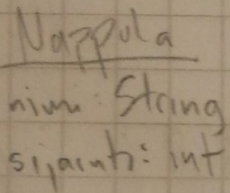 Nappula
nimi: String
sijainti: int